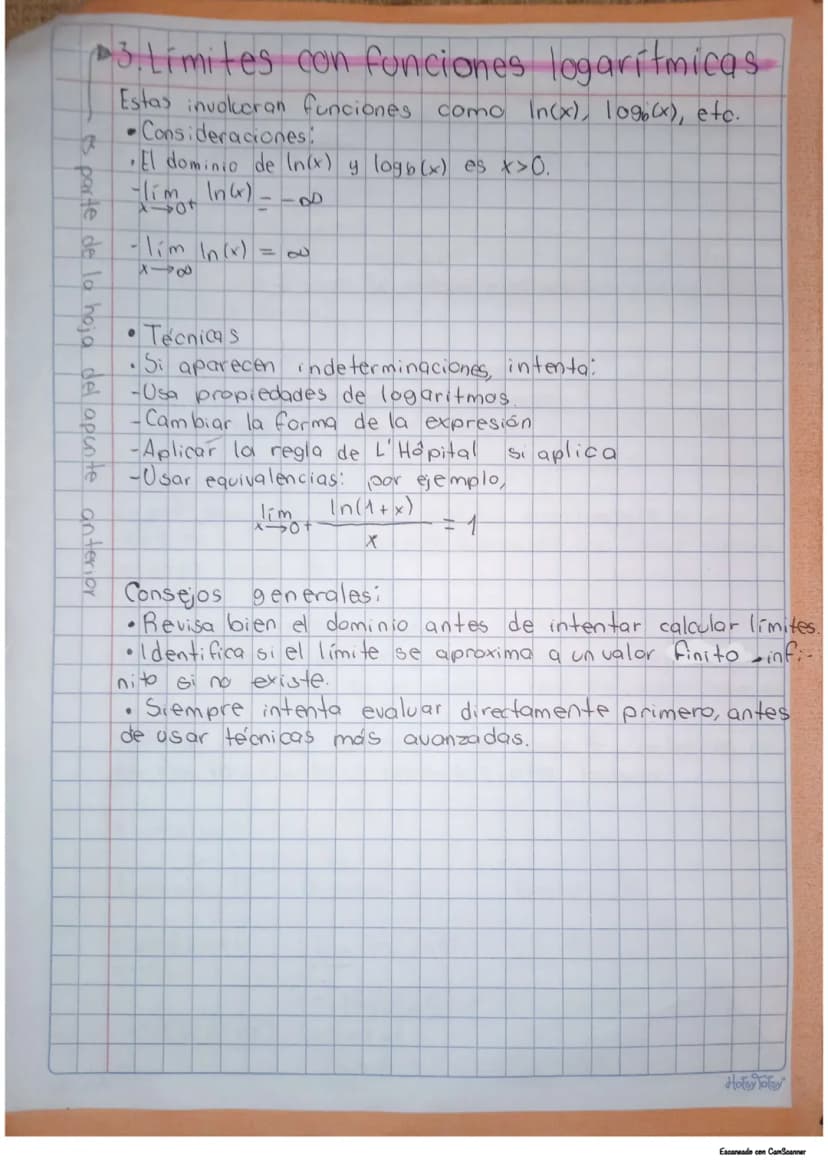 3. Límites con funciones logarítmicas
Estas involucran funciones como ln(x), logb(x), etc.
• Consideraciones:
• El dominio de ln(x) y logb(x) es x>0.
- lím ln(x) = -∞
x→0+
- lím ln(x) = ∞
x→∞
• Técnicas
• Si aparecen indeterminaciones, intenta:
- Usa propiedades de logaritmos
- Cambiar la forma de la expresión
- Aplicar la regla de L'Hôpital si aplica
- Usar equivalencias: por ejemplo,
lím ln(1+x) = 1
x→0+ x
Consejos generales:
• Revisa bien el dominio antes de intentar calcular límites.
• Identifica si el límite se aproxima a un valor finito, infi-
nito si no existe.
• Siempre intenta evaluar directamente primero, antes
de usar técnicas más avanzadas.
es parte de la hoja del apunte anterior
HotsyTotsy
Escaneado con CamScanner